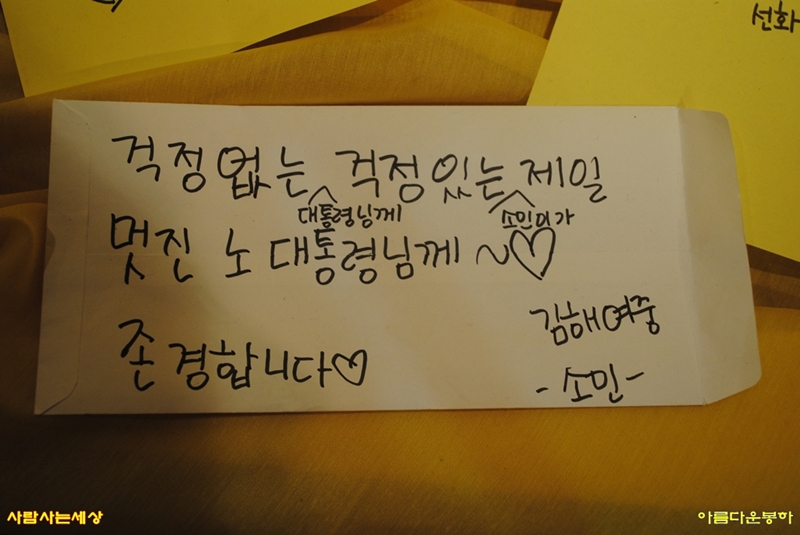 선화
걱정 없는 걱정있는 제일
대통령님께 소민이가
멋진 노 대통령님께 ~♡
김해여중
존경합니다♡
-소민-
사람사는세상
아름다운봉하